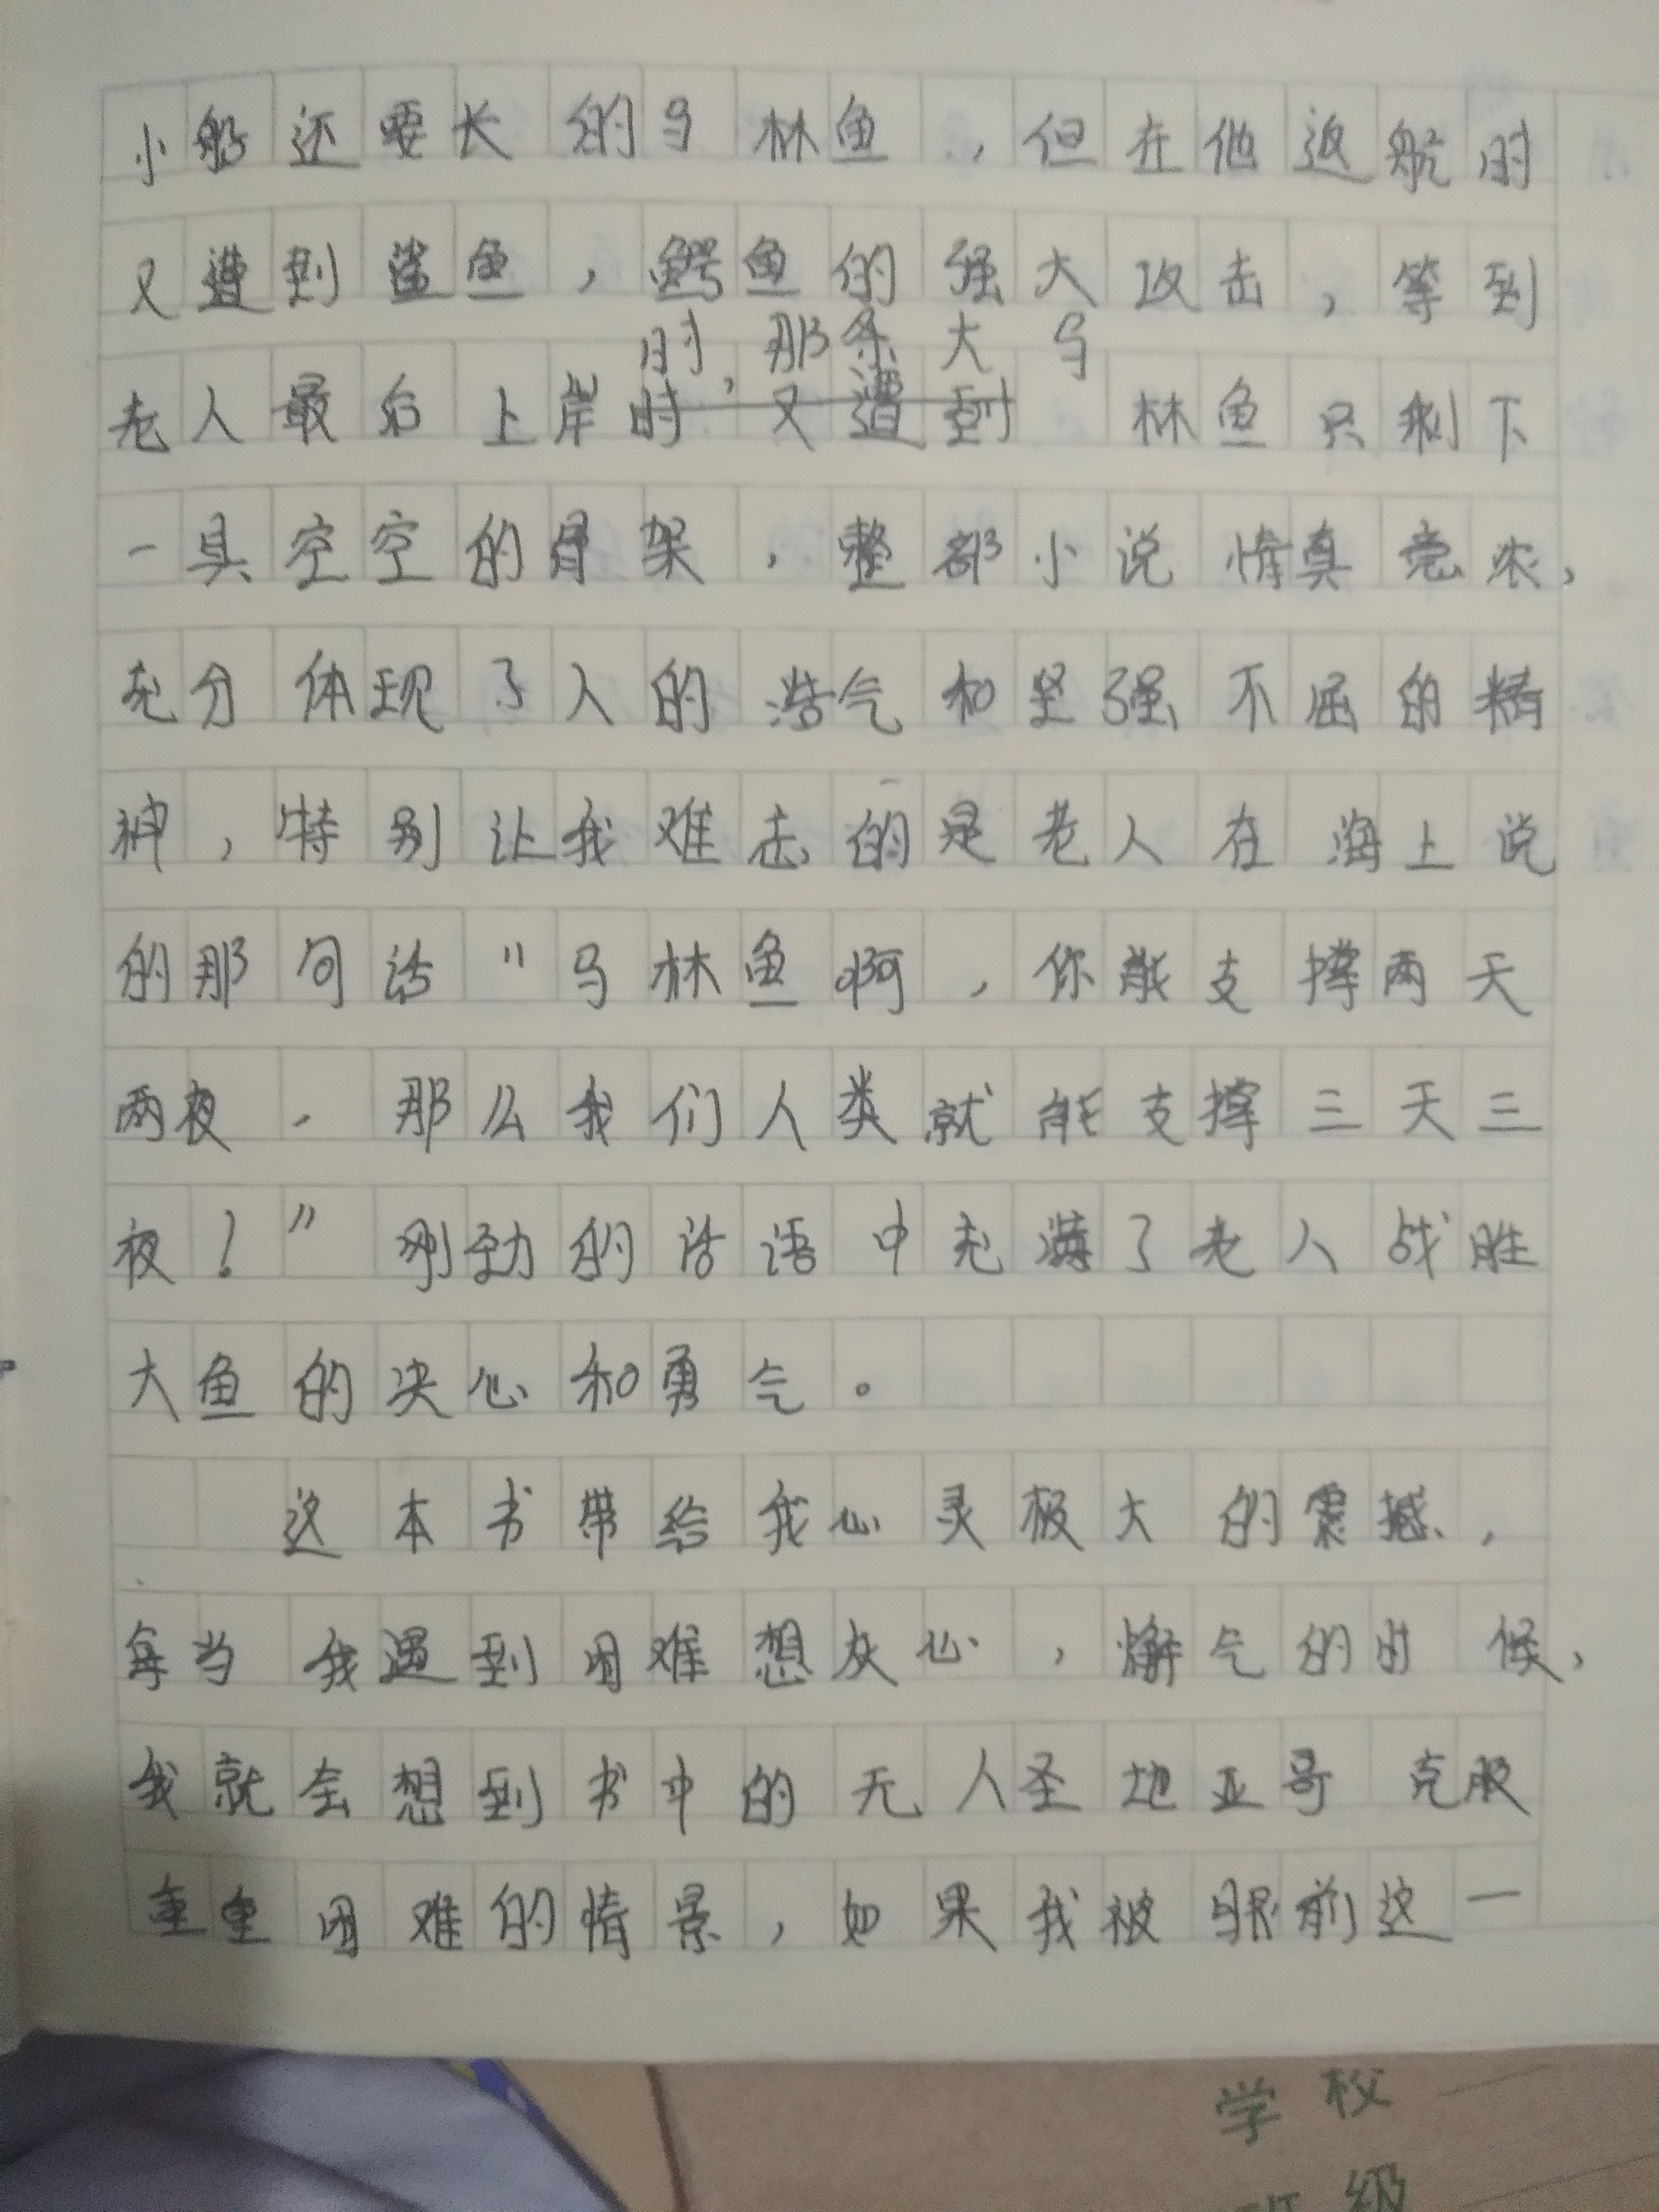 小船还要长的马林鱼，但在他返航时
又遭到鲨鱼，鳄鱼的强大攻击，等到
时，那条大马
老人最后上岸时又遭到林鱼只剩下
一具空空的骨架，整部小说情真意浓，
充分体现了人的浩气和坚强不屈的精
神，特别让我难忘的是老人在海上说
的那句话"马林鱼啊，你能支撑两天
两夜，那么我们人类就能支撑三天三
夜！"刚劲的话语中充满了老人战胜
大鱼的决心和勇气。
这本书带给我心灵极大的震撼，
每当我遇到困难想灰心，懈气的时候，
我就会想到书中的无人圣地亚哥克服
重重困难的情景，如果我被眼前这一
学校
班级